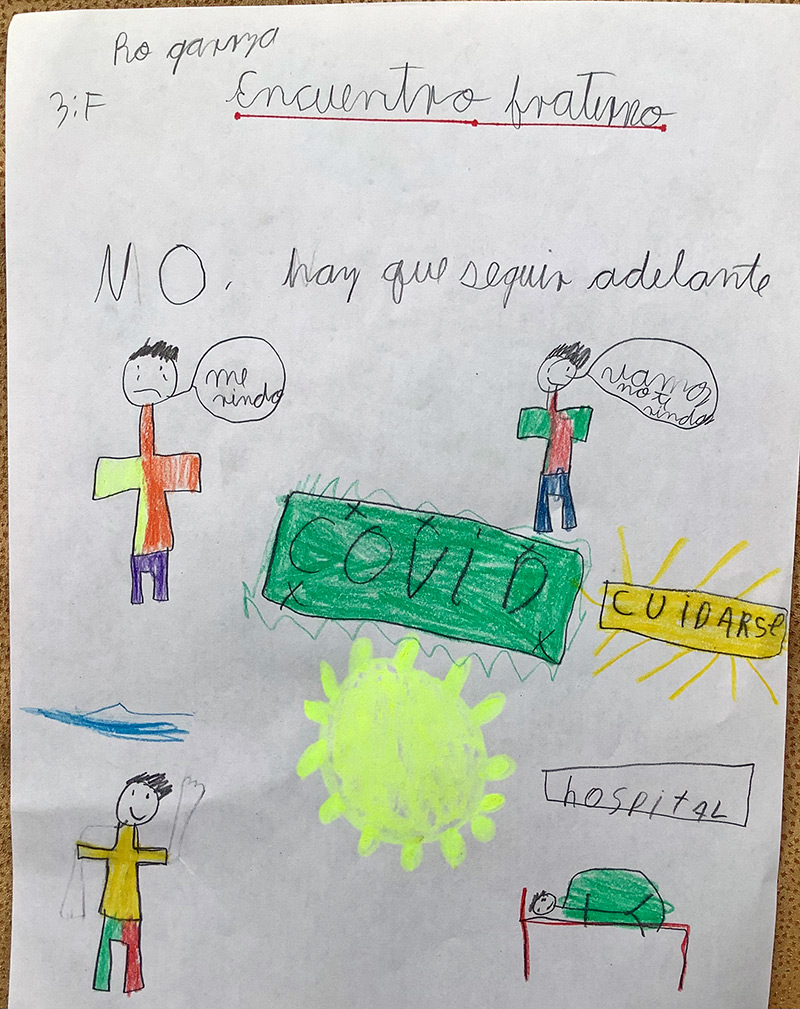 Ro garza
3:F
Encuentro fraterno
NO, hay que seguir adelante
me
rindo
vamos
no ti
rindas
COViD
CUiDARSe
hospital